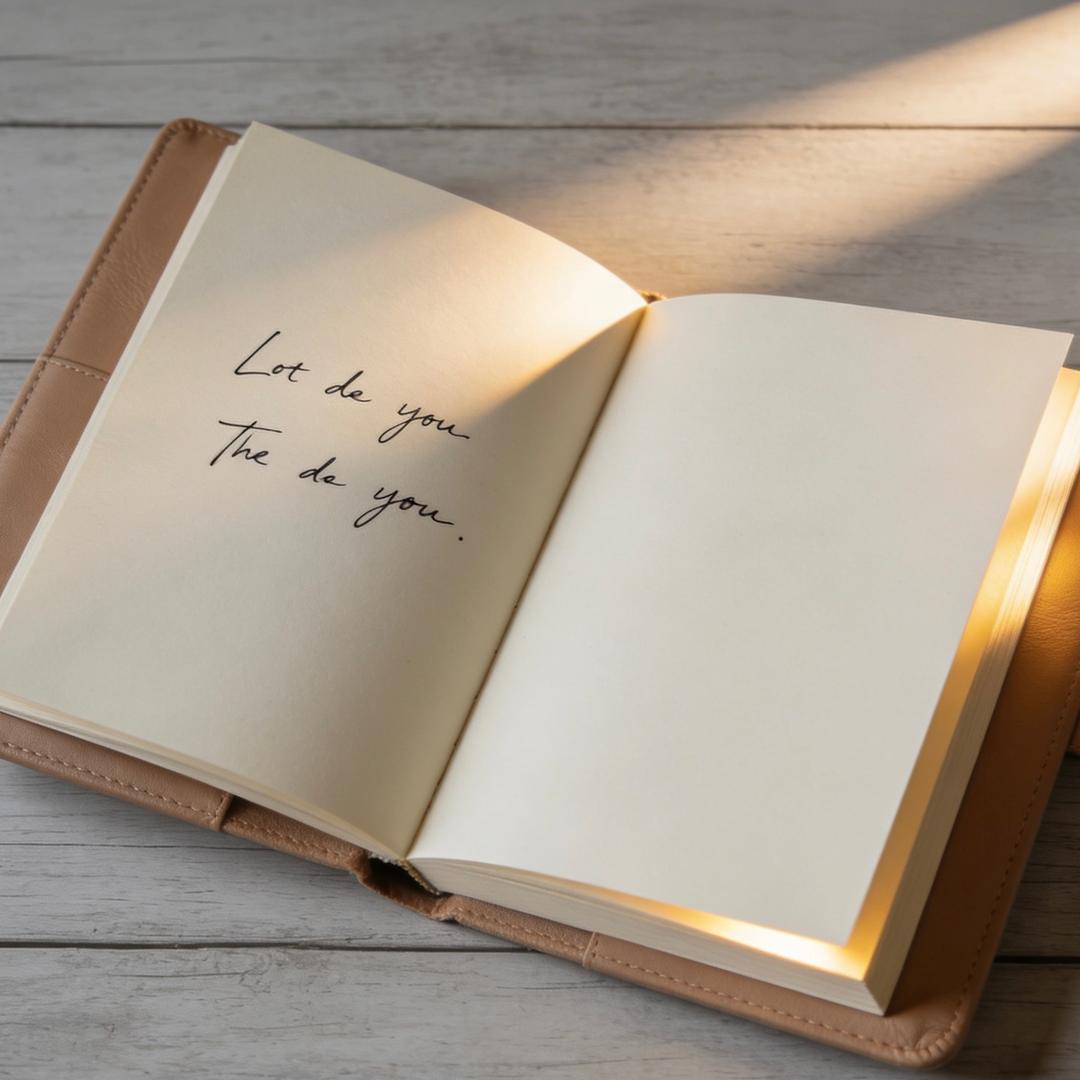 Lot de you
The de you.